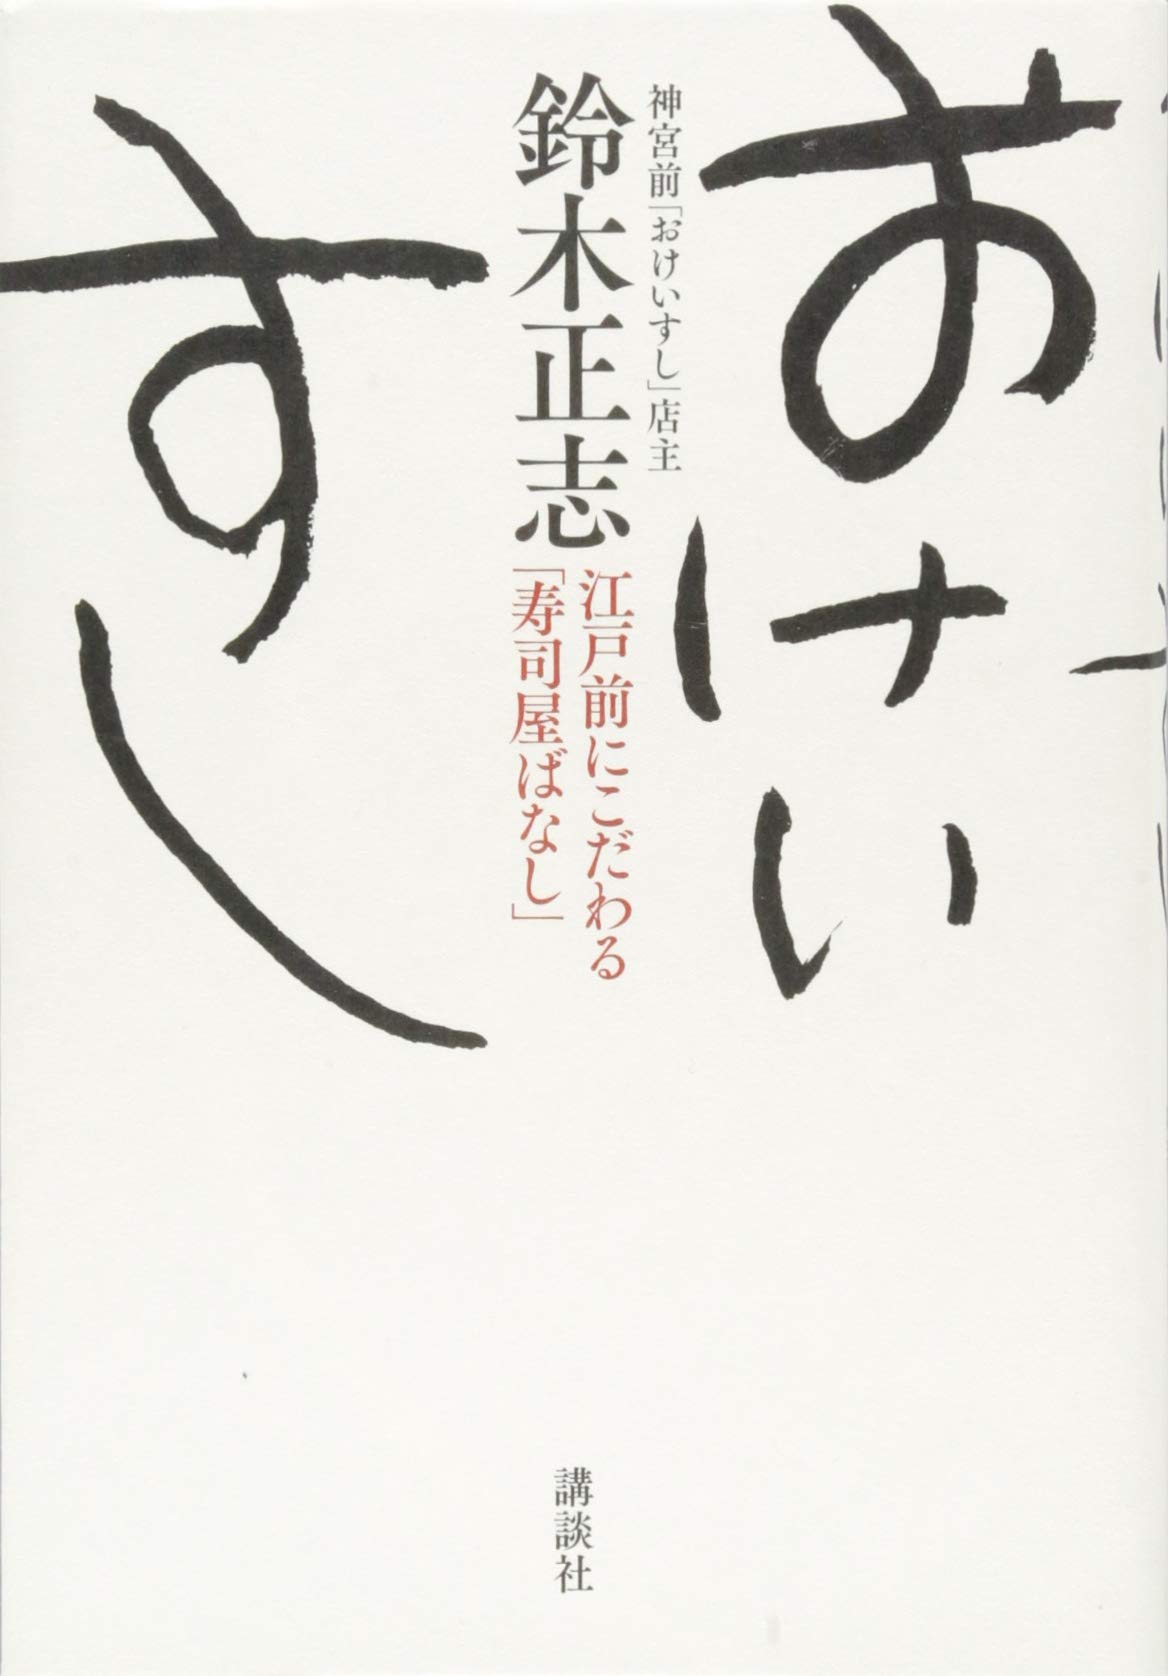 おけい
すし
神宮前「おけいすし」店主
鈴木正志
江戸前にこだわる
「寿司屋ばなし」
講談社